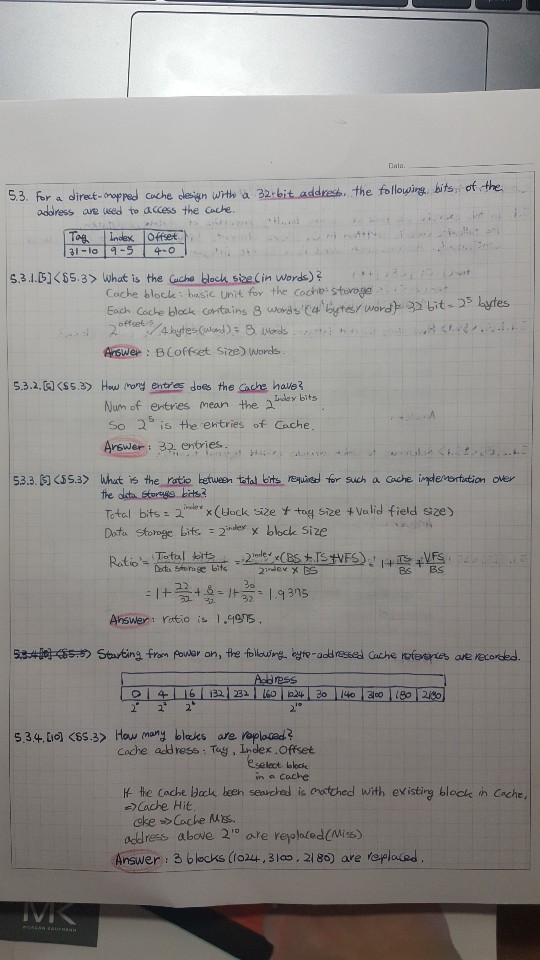 Date.
5.3. For a direct-mapped cache design with a 32-bit address, the following bits of the
address are used to access the cache.
Tag Index Offset
31-10 9-5 4-0
5.3.1.[5]<§5.3> What is the Cache block size (in words)?
Cache block: basic unit for the cache storage
Each Cache block contains 8 words (4 bytes/word) 32 bit = 2^5 bytes
2^offset /4bytes(word) = 8 words.
Answer: 8 (offset size) words.
5.3.2.[5] <§5.3> How many entries does the cache have?
Num of entries mean the 2^Index bits
So 2^5 is the entries of Cache.
Answer: 32 entries.
5.3.3.[5] <§5.3> What is the ratio between total bits required for such a cache implementation over
the data storage bits?
Total bits = 2^index x (block size + tag size + valid field size)
Data storage bits = 2^index x block size
Ratio = Total bits / Data storage bits = 2^index x (BS + TS + VFS) / 2^index x BS = 1 + TS/BS + VFS/BS
= 1 + 22/32 + 8/32 = 1 + 30/32 = 1.9375
Answer: ratio is 1.9375.
Starting from power on, the following byte-addressed Cache references are recorded.
Address
0 4 16 132 232 160 1024 30 140 3100 180 2180
2^0 2^2 2^10
5.3.4.[10] <§5.3> How many blocks are replaced?
Cache address: Tag, Index, Offset
select block
in a cache
If the cache block been searched is matched with existing block in Cache,
⇒ Cache Hit.
else ⇒ Cache Miss.
address above 2^10 are replaced (Miss)
Answer: 3 blocks (1024, 3100, 2180) are replaced.
MK
MORGAN KAUFMANN